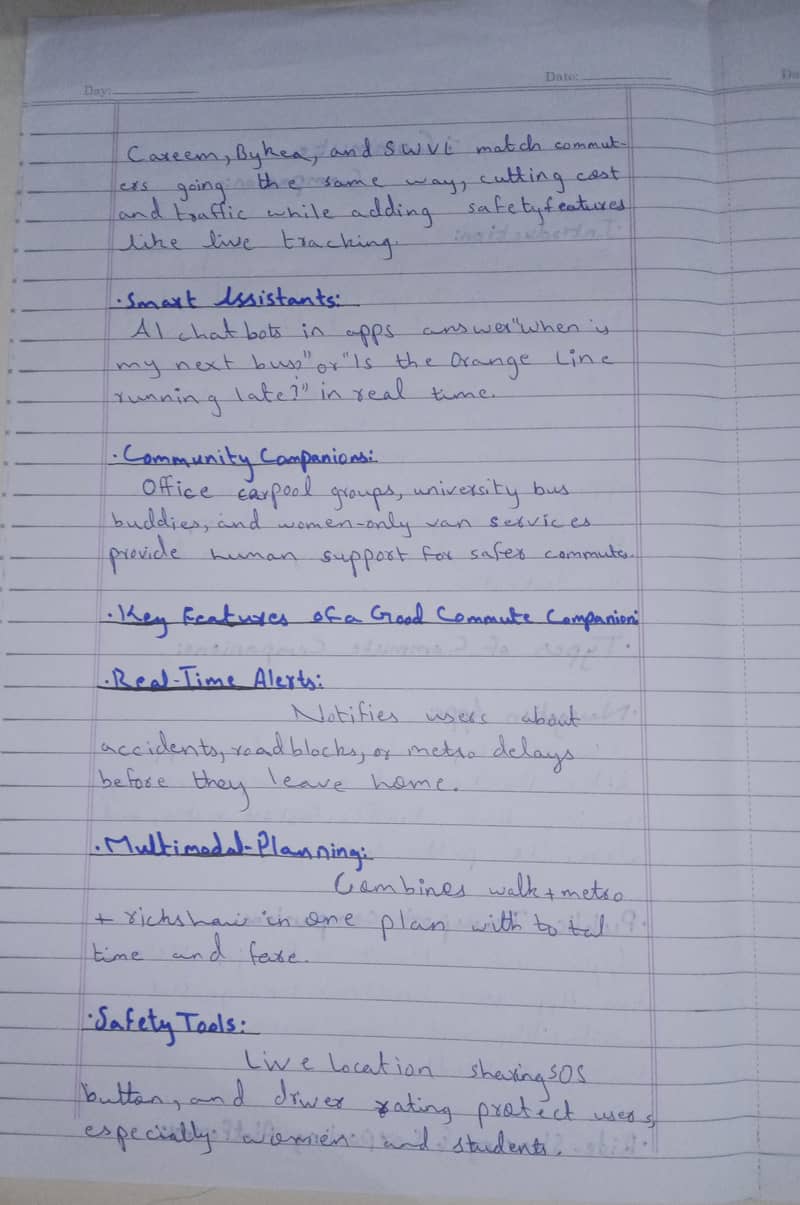 Day:
Date:
Careem, Bykea, and SWVL match commut-
ers going the same way, cutting cost
and traffic while adding safety features
like live tracking.
·Smart Assistants:
AI chat bots in apps answer "when is
my next bus?" or "Is the Orange Line
running late?" in real time.
·Community Companions:
Office carpool groups, university bus
buddies, and women-only van services
provide human support for safer commute.
·Key Features of a Good Commute Companion:
·Real-Time Alerts:
Notifies users about
accidents, roadblocks, or metro delays
before they leave home.
·Multimodal-Planning:
Combines walk + metro
+ richshaw in one plan with total
time and fare.
·Safety Tools:
Live location sharing SOS
button, and driver rating protect users,
especially women and students.